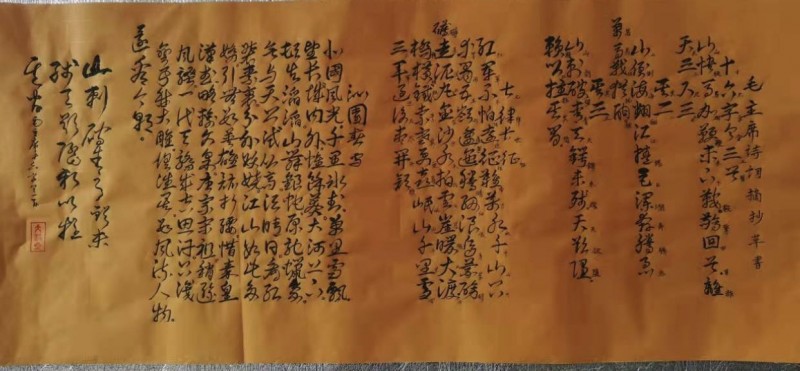 毛主席诗词摘抄草书
十六字令三首
山快马加鞭未下鞍惊回首离
天三尺三
其二
山倒海翻江卷巨澜奔腾急
万马战犹酣
其三
山刺破青天锷未残天欲堕
赖以拄其间
七律长征
红军不怕远征难万水千山只
等闲五岭逶迤腾细浪乌蒙磅
礴走泥丸金沙水拍云崖暖大渡
桥横铁索寒更喜岷山千里雪
三军过后尽开颜
沁园春雪
北国风光千里冰封万里雪飘
望长城内外惟余莽莽大河上下
顿失滔滔山舞银蛇原驰蜡象
欲与天公试比高须晴日看红
装素裹分外妖娆江山如此多
娇引无数英雄竞折腰惜秦皇
汉武略输文采唐宗宋祖稍逊
风骚一代天骄成吉思汗只识
弯弓射大雕俱往矣数风流人物
还看今朝
山刺破青天锷未
残天欲堕赖以拄
其间